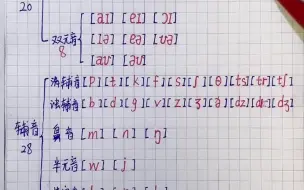 20
[aɪ] [eɪ] [ɔɪ]
双元音 [ɪə] [eə] [ʊə]
8
[aʊ] [əʊ]
清辅音 [p] [t] [k] [f] [s] [ʃ] [θ] [ts] [tr] [tʃ]
浊辅音 [b] [d] [g] [v] [z] [ʒ] [ð] [dz] [dr] [dʒ]
辅音 鼻音 [m] [n] [ŋ]
28
半元音 [w] [j]